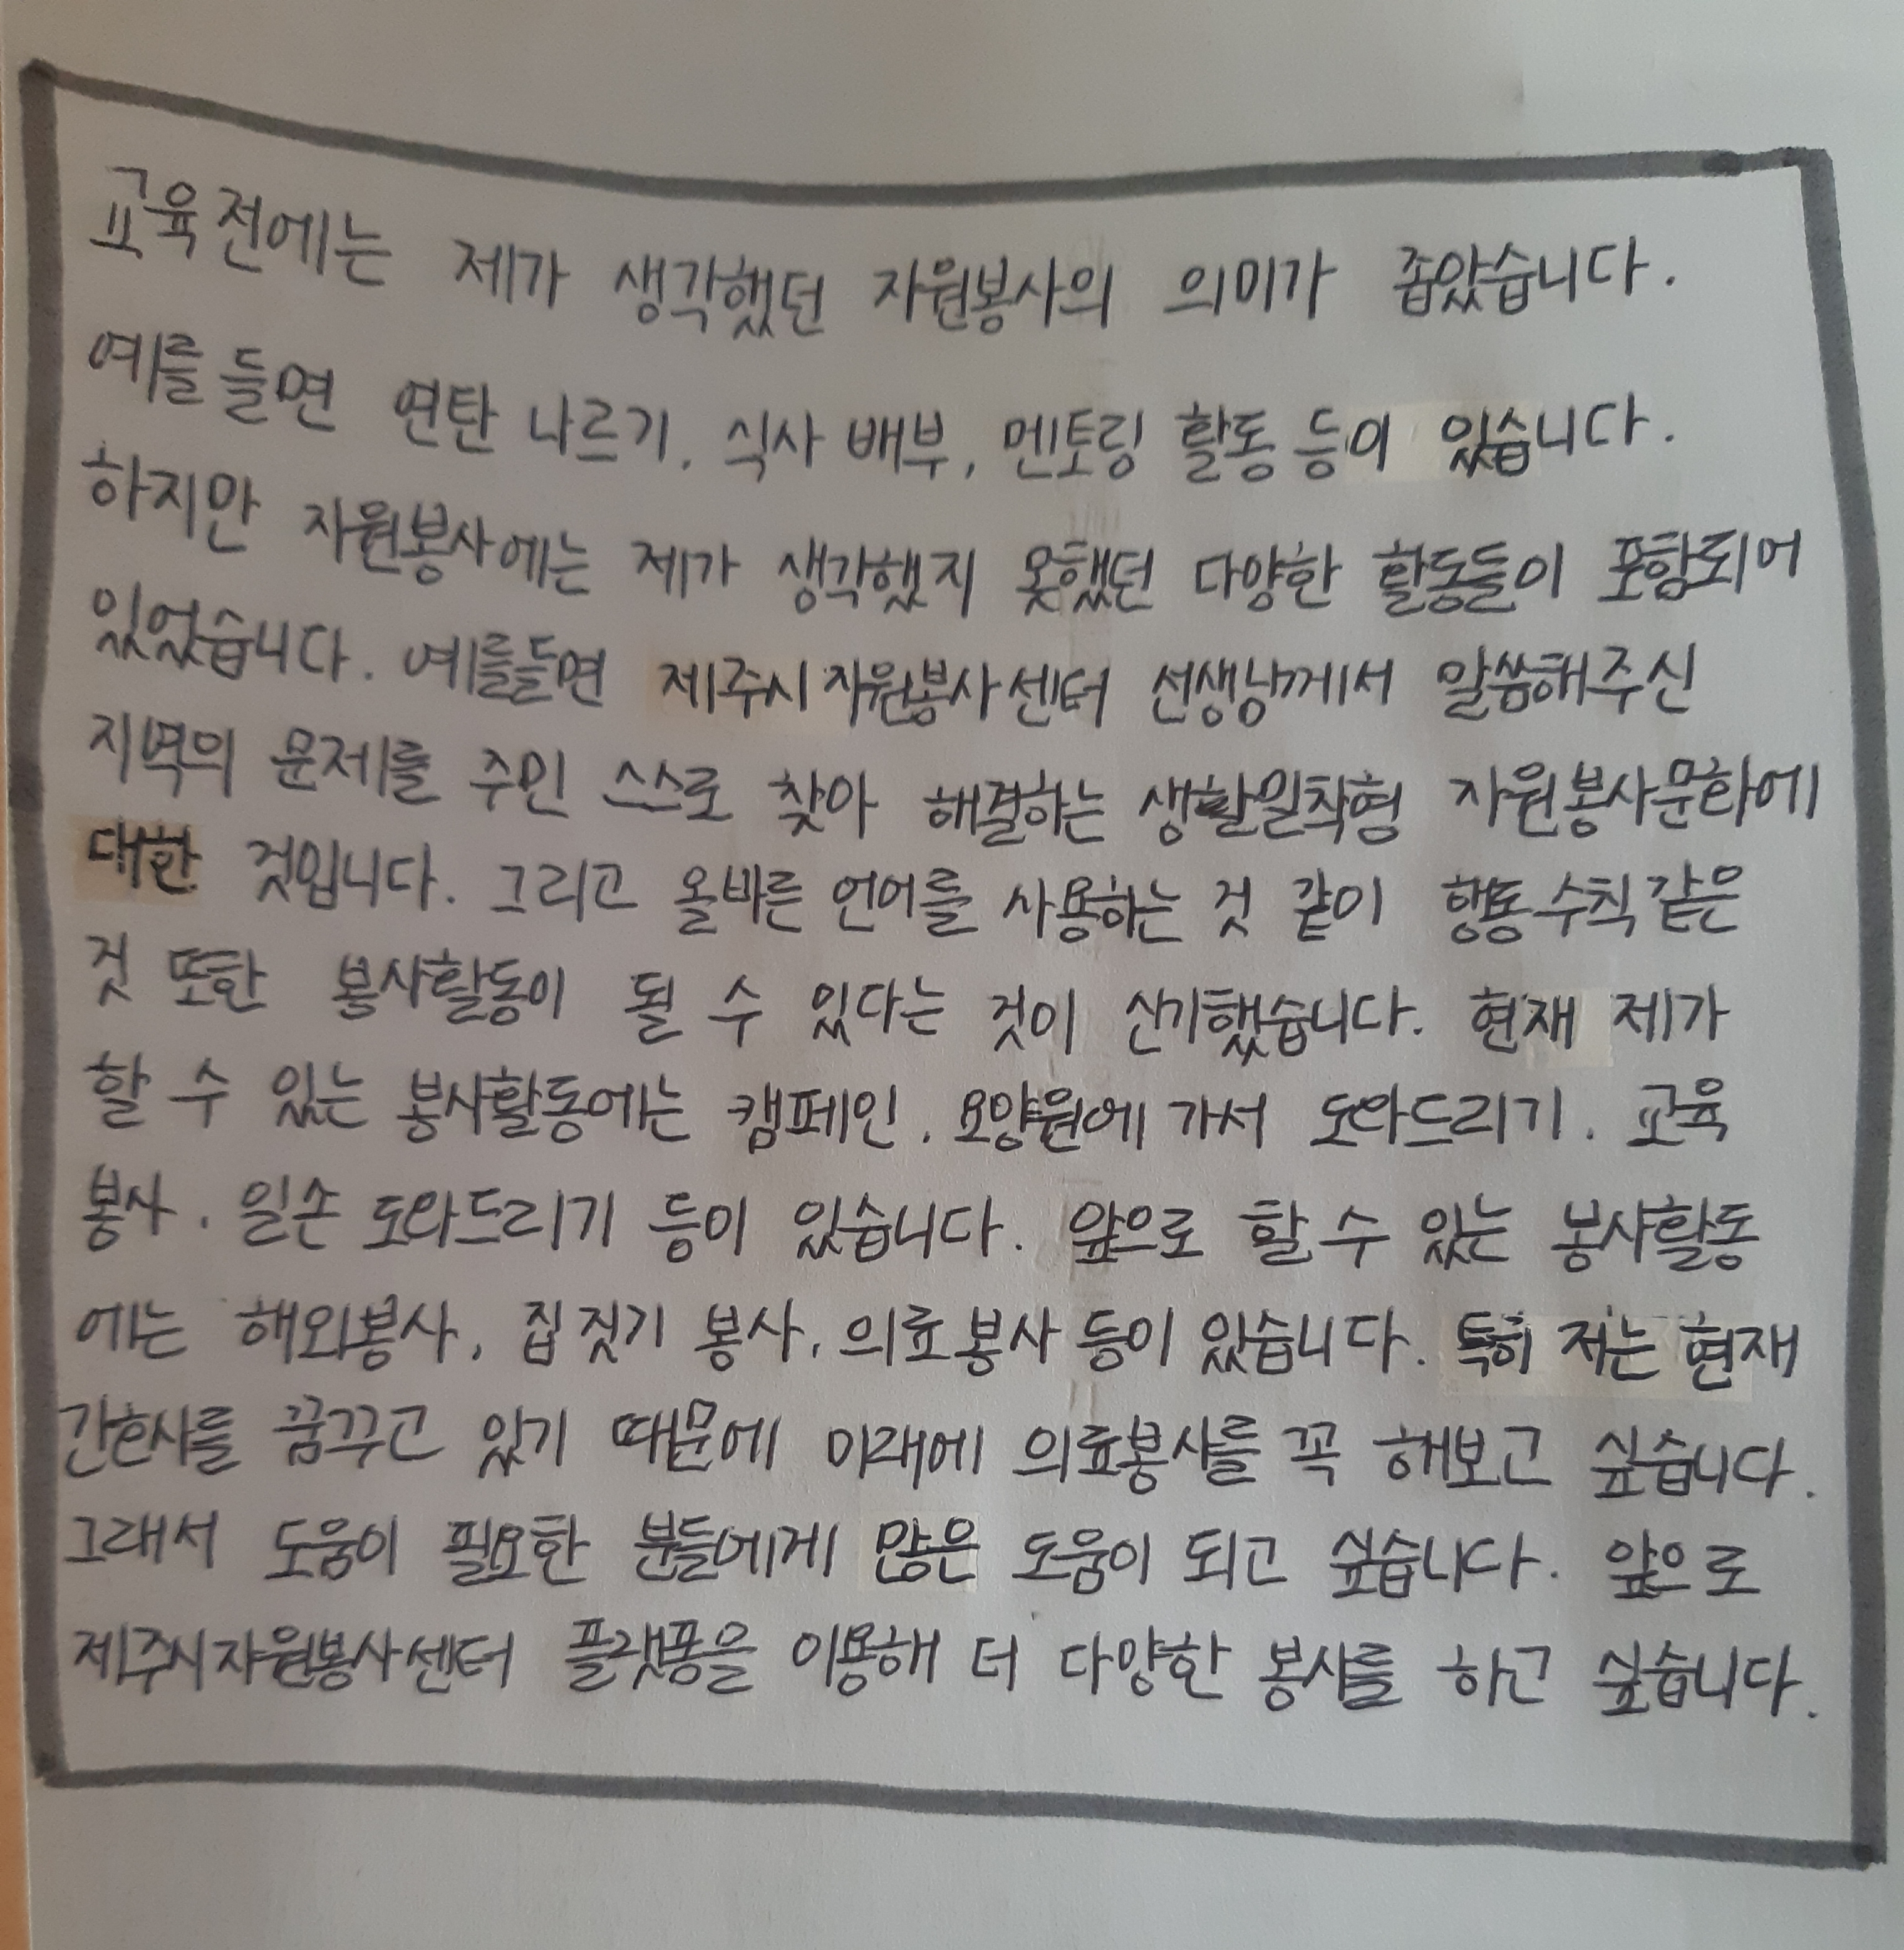 교육전에는 제가 생각했던 자원봉사의 의미가 좁았습니다.
예를 들면 연탄 나르기, 식사 배부, 멘토링 활동 등이 있습니다.
하지만 자원봉사에는 제가 생각했지 못했던 다양한 활동들이 포함되어
있었습니다. 예를들면 제주시자원봉사센터 선생님께서 말씀해주신
지역의 문제를 주민 스스로 찾아 해결하는 생활밀착형 자원봉사문화에
대한 것입니다. 그리고 올바른 언어를 사용하는 것 같이 행동수칙같은
것 또한 봉사활동이 될 수 있다는 것이 신기했습니다. 현재 제가
할 수 있는 봉사활동에는 캠페인, 요양원에 가서 도와드리기, 교육
봉사, 일손 도와드리기 등이 있습니다. 앞으로 할 수 있는 봉사활동
에는 해외봉사, 집 짓기 봉사, 의료봉사 등이 있습니다. 특히 저는 현재
간호사를 꿈꾸고 있기 때문에 미래에 의료봉사를 꼭 해보고 싶습니다.
그래서 도움이 필요한 분들에게 많은 도움이 되고 싶습니다. 앞으로
제주시자원봉사센터 플랫폼을 이용해 더 다양한 봉사를 하고 싶습니다.